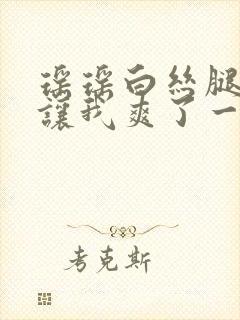 瑶瑶白丝腿
让我爽了一
考克斯